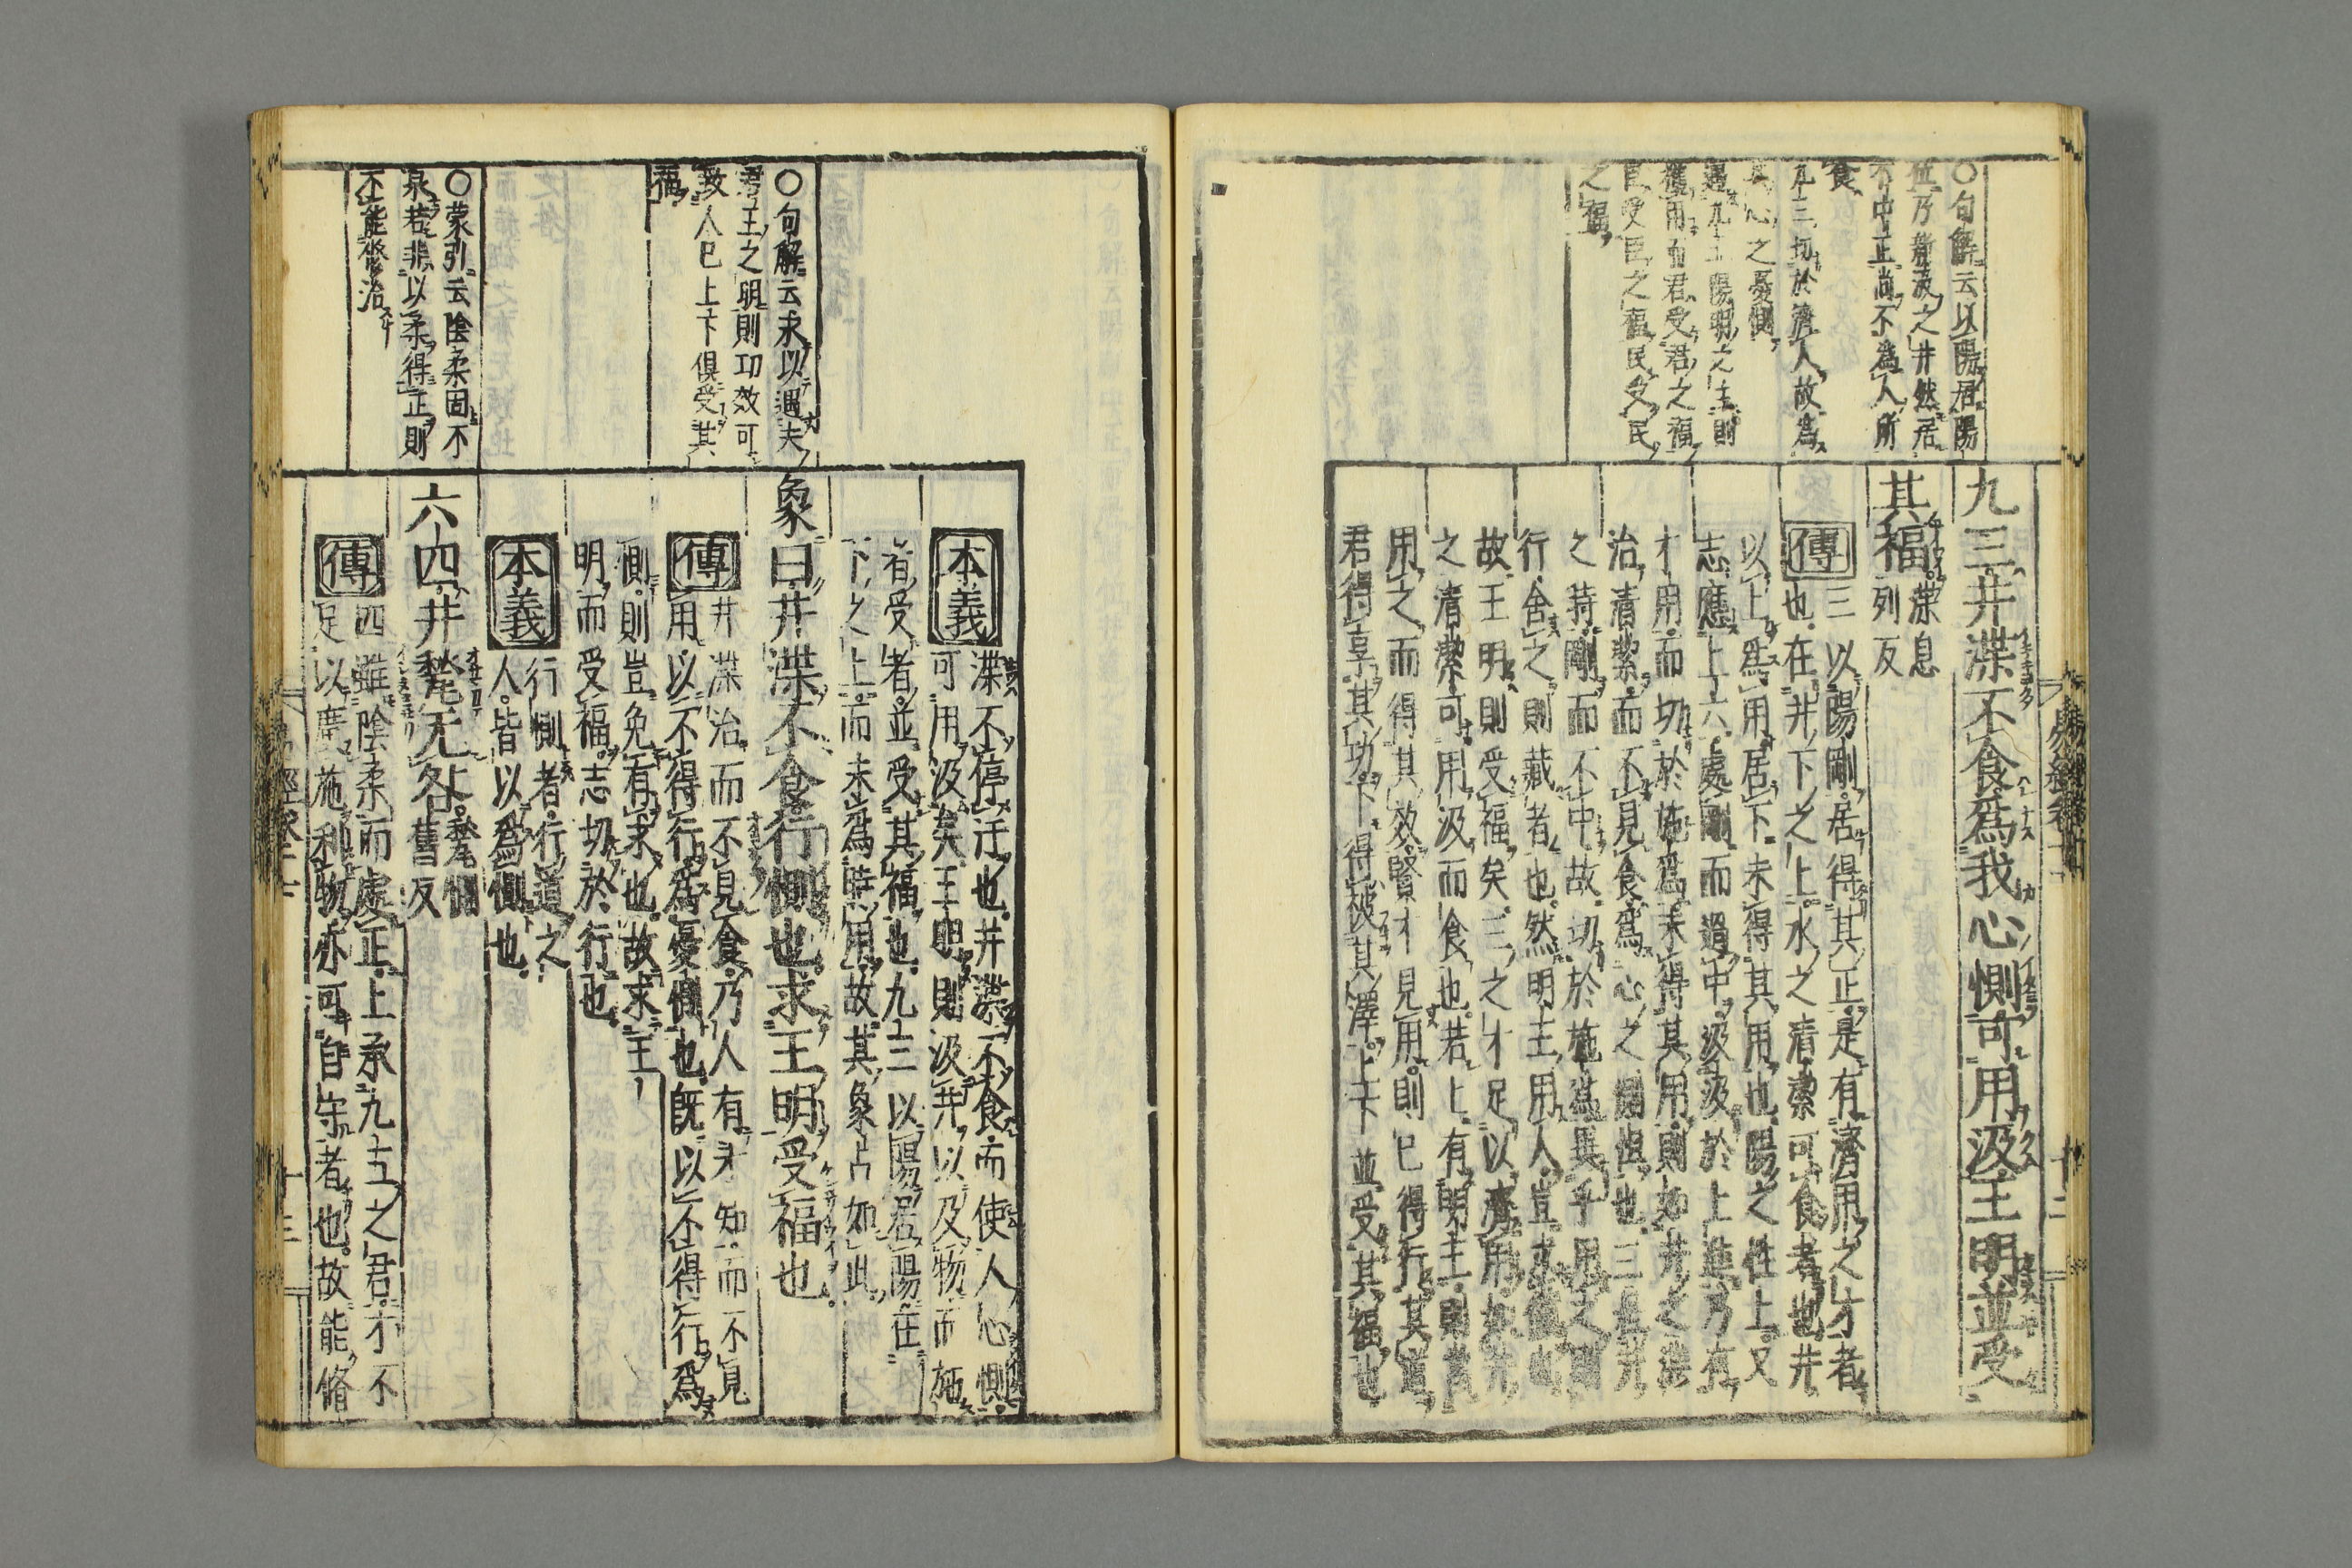 ○句解云以陽居陽
位乃新汲之井然居
不中正尚不為人所
食
九三切於濟人故為
我心之憂惻
遇九五陽明之主則
獲用而君受君之福
臣受臣之福民受民
之福
九三井渫不食為我心惻可用汲王明並受
其福渫息
列反
傳三以陽剛居得其正是有濟用之才者
也在井下之上水之清潔可食者也井
以上為用居下未得其用也陽之性上又
志應上六處剛而過中汲汲於上進乃有
才用而切於施為未得其用則如井之渫
治清潔而不見食為心之惻怛也三居井
之時剛而不中故切於施為異乎用之則
行舍之則藏者也然明王用人豈求備也
故王明則受福矣三之才足以濟用如井
之清潔可用汲而食也若上有明王則當
用之而得其效賢才見用則己得行其道
君得享其功下得被其澤上下並受其福也
○句解云求以遇夫
君王之明則功效可
致人己上下俱受其
福
○蒙引云陰柔固不
泉若非以柔得正則
不能脩治
本義渫不停汙也井渫不食而使人心惻
可用汲矣王明則汲井以及物而施
者受者並受其福也九三以陽居陽在
下之上而未為時用故其象占如此
象曰井渫不食行惻也求王明受福也
傳井渫治而不見食乃人有才知而不見
用以不得行為憂惻也既以不得行為
惻則豈免有求也故求王
明而受福志切於行也
本義行惻者行道之
人皆以為惻也
六四井甃无咎甃側
舊反
傳四雖陰柔而處正上承九五之君才不
足以廣施利物亦可自守者也故能脩
十三